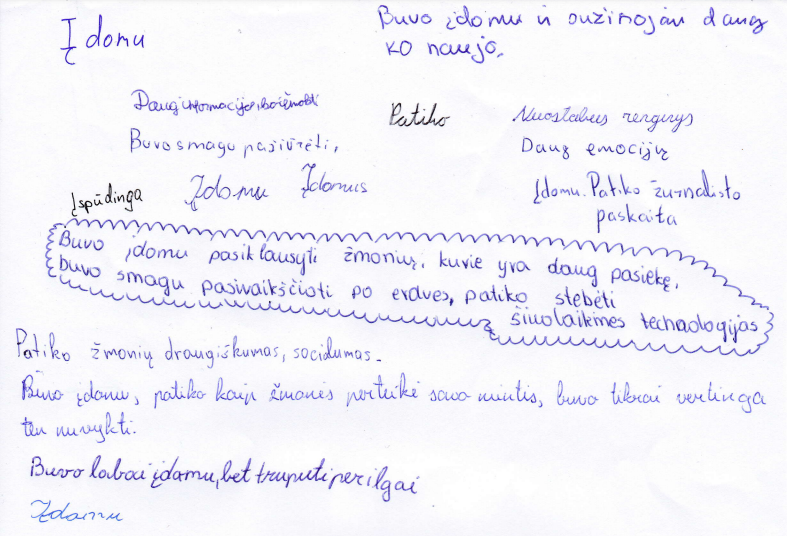 Įdomu
Buvo įdomu ir sužinojau daug
ko naujo.
Daug informacijos, buvo įdomu
Patiko
Nuostabus renginys
Buvo smagu pasižiūrėti,
Daug emocijų
Įspūdinga
Įdomu
Įdomus
Įdomu. Patiko žurnalisto
paskaita
Buvo įdomu pasiklausyti žmonių, kurie yra daug pasiekę,
buvo smagu pasivaikščioti po erdves, patiko stebėti
šiuolaikines technologijas
Patiko žmonių draugiškumas, socialumas.
Buvo įdomu, patiko kaip žmonės perteikė savo mintis, buvo tikrai vertinga
ten nuvykti.
Buvo labai įdomu, bet truputi per ilgai
Įdomu